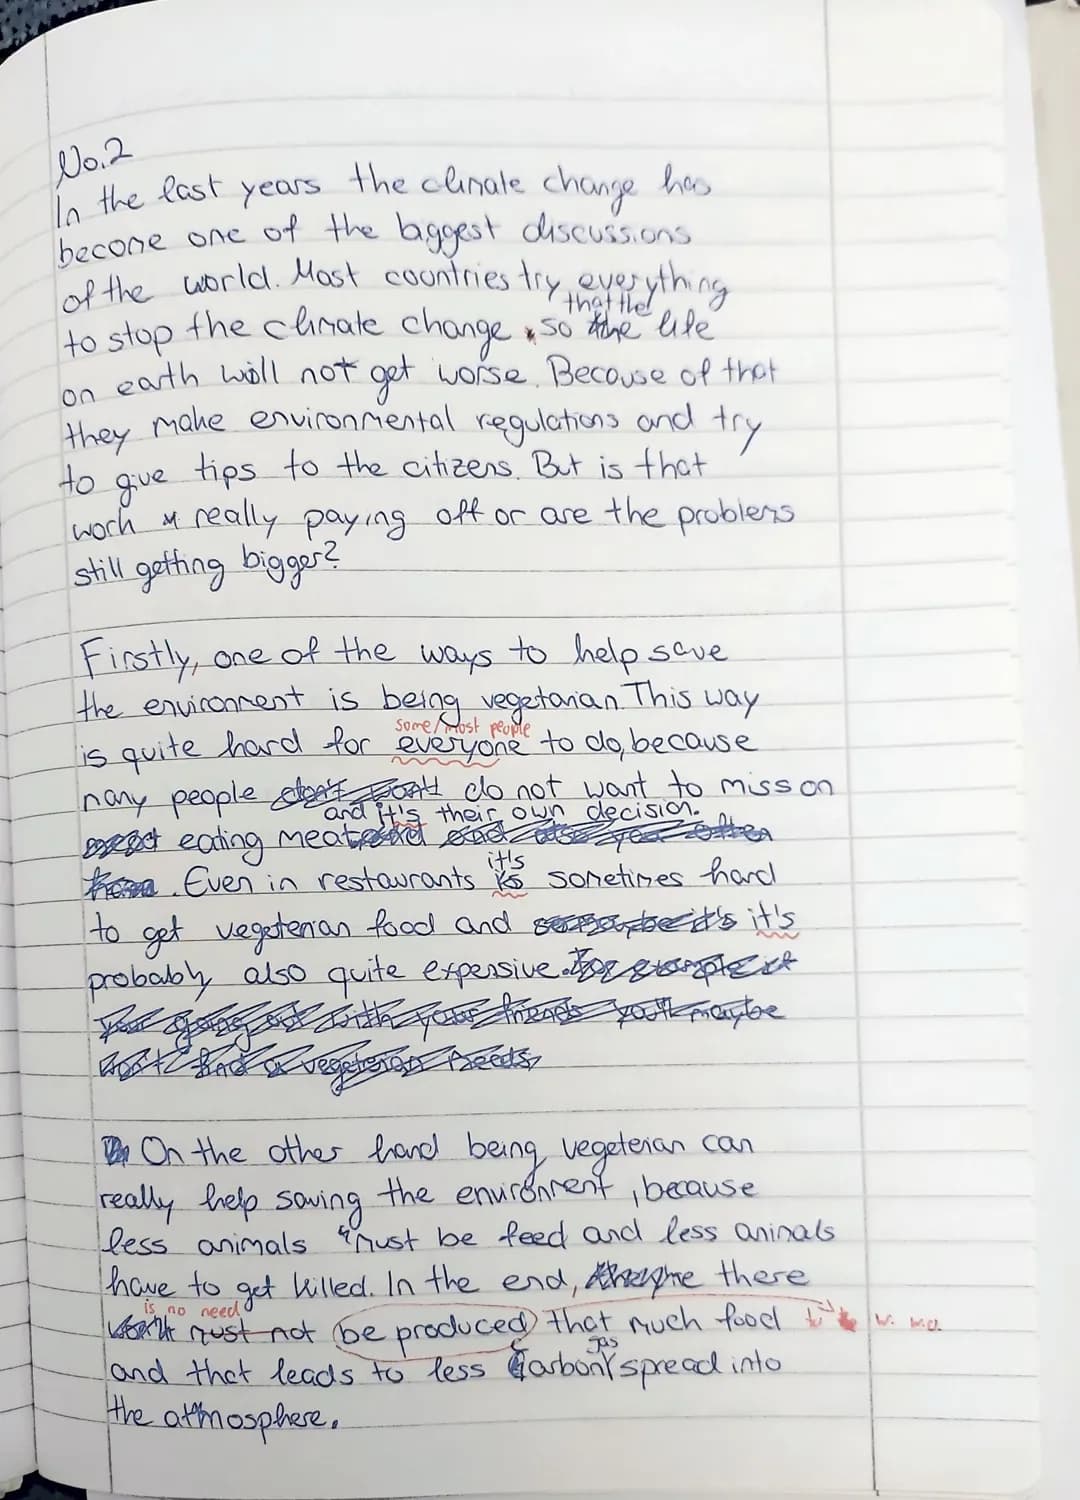 No.2
In the last years the climate change has
become one of the biggest discussions
of the world. Most countries try everything
that the
to stop the climate change so the life
on earth will not get worse. Because of that
they make environmental regulations and try
to give tips to the citizens. But is that
work really paying off or are the problems
still getting bigger?
Firstly, one of the ways to help save
the environment is being vegetarian. This way
some/most people
is quite hard for everyone to do, because
many people do not want to miss on
and it's their own decision.
eating meat
it's
. Even in restaurants is sometimes hard
to get vegeterian food and it's
probably also quite expensive.
On the other hand being vegeterian can
really help saving the environment, because
less animals must be feed and less animals
have to get killed. In the end, there
is no need
must not be produced that much food to w. w.o.
gas
and that leads to less carbon spread into
the atmosphere.